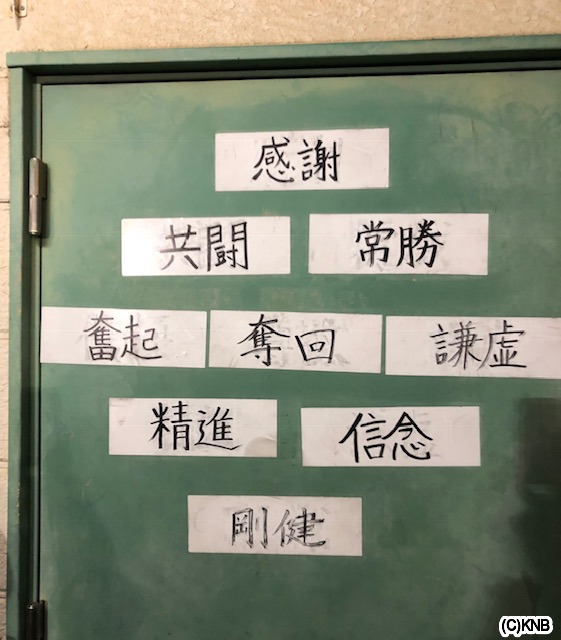 感謝
共闘 常勝
奮起 奪回 謙虚
精進 信念
剛健
(C)KNB